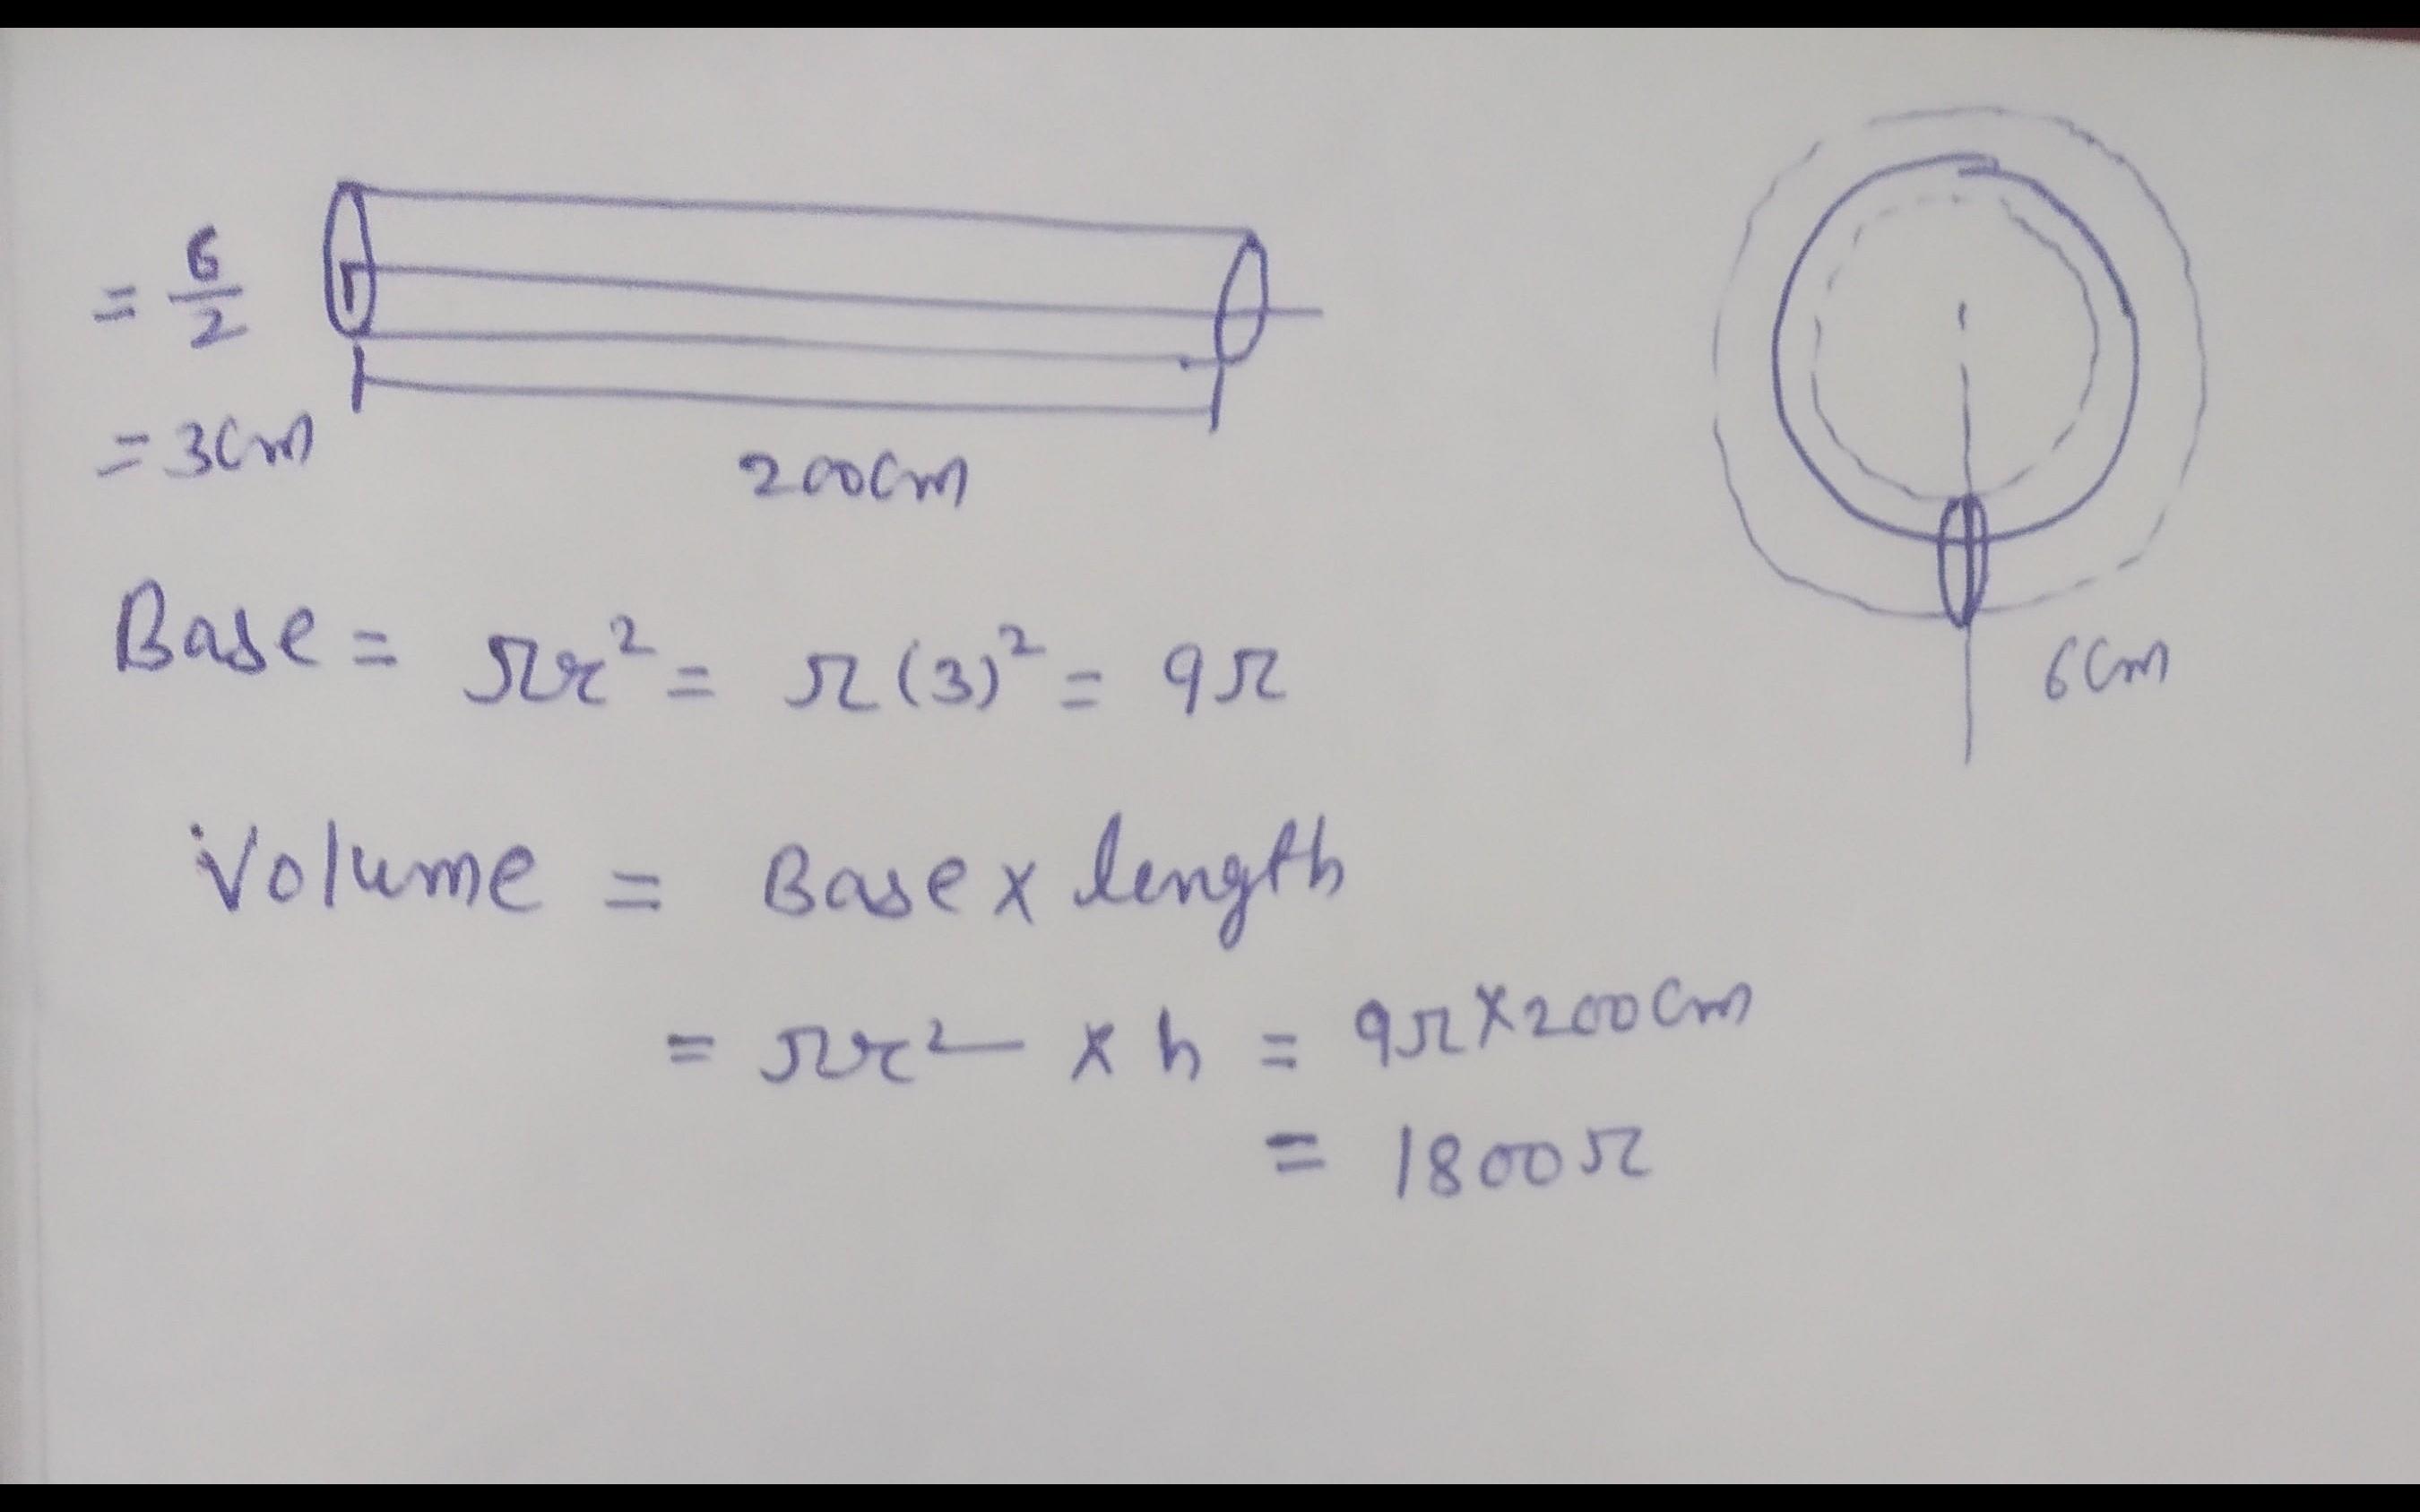 = 6/2
= 3cm
200cm
6cm
Base = πr² = π(3)² = 9π
Volume = Base x length
= πr² x h = 9π x 200cm
= 1800π